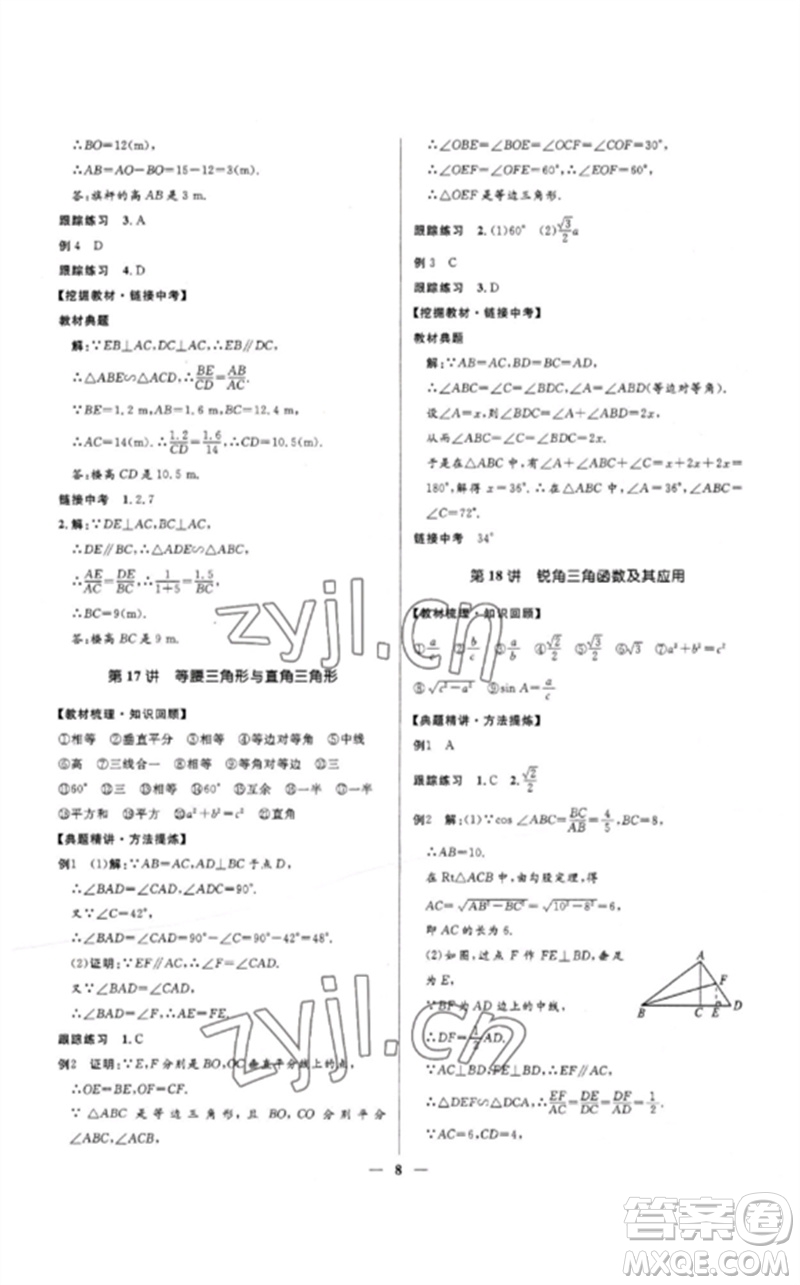 ∴BO=12(m).
∴AB=AO−BO=15−12=3(m).
答:旗杆的高AB是3 m.
跟踪练习 3.A
例4 D
跟踪练习 4.D
【挖掘教材·链接中考】
教材典题
解:∵EB⊥AC,DC⊥AC,∴EB∥DC,
∴△ABE∽△ACD,∴BE/CD=AB/AC.
∵BE=1.2 m,AB=1.6 m,BC=12.4 m,
∴AC=14(m).∴1.2/CD=1.6/14∴CD=10.5(m).
答:楼高CD是10.5 m.
链接中考 1.2.7
2.解:∵DE⊥AC,BC⊥AC,
∴DE∥BC,∴△ADE∽△ABC,
∴AE/AC=DE/BC,∴1/(1+5)=1.5/BC,
∴BC=9(m).
答:楼高BC是9 m.
第17讲 等腰三角形与直角三角形
【教材梳理·知识回顾】
①相等 ②垂直平分 ③相等 ④等边对等角 ⑤中线
⑥高 ⑦三线合一 ⑧相等 ⑨等角对等边 ⑩三
⑪60° ⑫三 ⑬相等 ⑭60° ⑮互余 ⑯一半 ⑰一半
⑱平方和 ⑲直角 ⑳a²+b²=c² ㉑直角
【典题精讲·方法提炼】
例1 (1)解:∵AB=AC,AD⊥BC于点D,
∴∠BAD=∠CAD,∠ADC=90°.
又∵∠C=42°,
∴∠BAD=∠CAD=90°−∠C=90°−42°=48°.
(2)证明:∵EF∥AC,∴∠F=∠CAD.
又∵∠BAD=∠CAD,
∴∠BAD=∠F,∴AE=FE.
跟踪练习 1.C
例2 证明:∵E,F分别是BO,OC垂直平分线上的点,
∴OE=BE,OF=CF.
∵△ABC是等边三角形,且BO,CO分别平分
∠ABC,∠ACB,
∴∠OBE=∠BOE=∠OCF=∠COF=30°,
∴∠OEF=∠OFE=60°,∴∠EOF=60°,
∴△OEF是等边三角形.
跟踪练习 2.(1)60° (2)√3/2 a
例3 C
跟踪练习 3.D
【挖掘教材·链接中考】
教材典题
解:∵AB=AC,BD=BC=AD,
∴∠ABC=∠C=∠BDC,∠A=∠ABD(等边对等角).
设∠A=x,则∠BDC=∠A+∠ABD=2x,
从而∠ABC=∠C=2x.
于是在△ABC中,有∠A+∠ABC+∠C=x+2x+2x=
180°,解得x=36°.∴在△ABC中,∠A=36°,∠ABC=
∠C=72°.
链接中考 34°
第18讲 锐角三角函数及其应用
【教材梳理·知识回顾】
①a/c ②b/c ③a/b ④√2/2 ⑤√2/2 ⑥√3 ⑦a²+b²=c²
⑧√(c²−a²) ⑨sin A=a/c
【典题精讲·方法提炼】
例1 A
跟踪练习 1.C 2.√2/2
例2 解:(1)∵cos∠ABC=BC/AB=4/5,BC=8,
∴AB=10.
在Rt△ACB中,由勾股定理,得
AC=√(AB²−BC²)=√(10²−8²)=6,
即AC的长为6.
(2)如图,过点F作FE⊥BD,垂足
为E,
∵BF为AD边上的中线,
∴DF=1/2AD.
∵AC⊥BD,FE⊥BD,
∴△DEF∽△DCA,∴EF/AC=DE/DC=DF/AD=1/2.
∵AC=6,CD=4,
A
F
B
C
E
D
— 8 —
zyjl.cn
zyjl.cn
答案卷
MXQE.COM